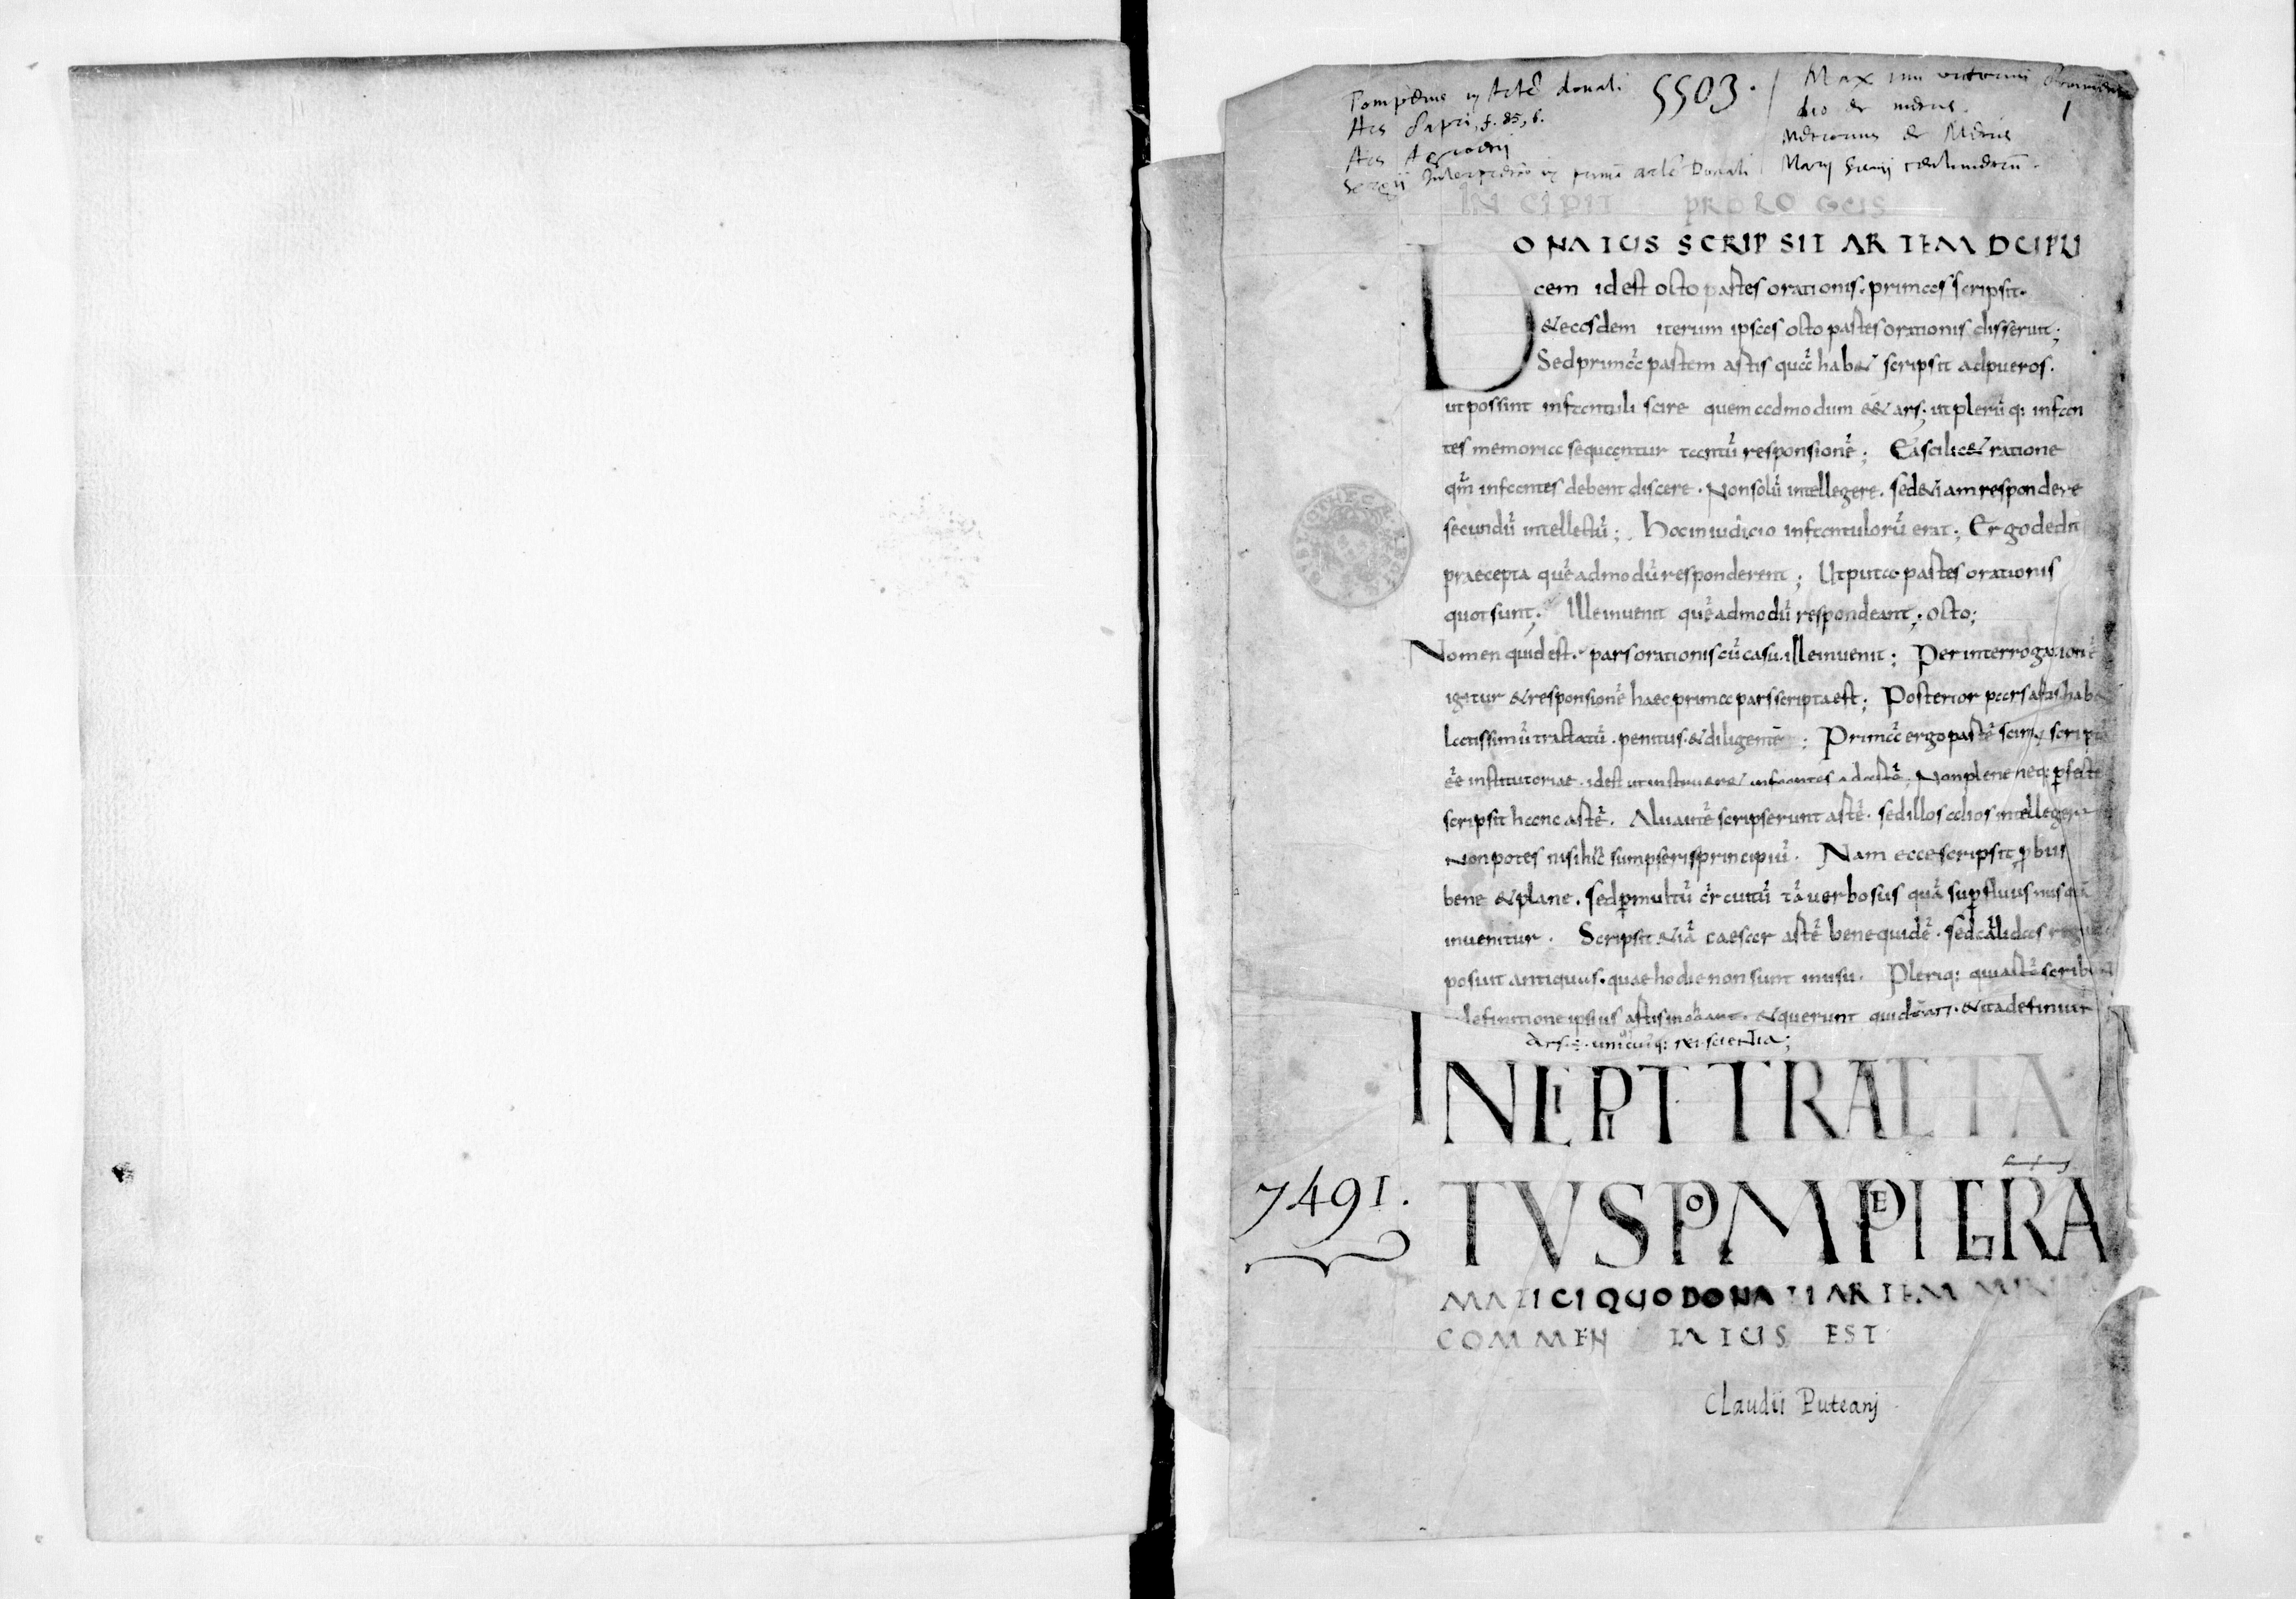 Pompeius in Artē donati 5503. Max imi victorini
Ars Capri, f. 85, b. dio de metris. 1
Ars Agroetii Metrorius de Metris
Sergii Interpretatio in primā artē Donati Marij Seruij centimetrū.
INCIPIT PROLOGUS
DONATUS SCRIPSIT ARTEM DUPLI
cem id est octo partes orationis. primas scripsit.
& eosdem iterum ipsas octo partes orationis disserrit;
Sed primā partem artis quā hab& scripsit ad pueros.
ut possint infantuli scire quem admodum e& ars. ut plerūq: infan
tes memoria sequantur tantū responsionē; Ea scilic& ratione
qm̄ infantes debent discere. Non solū intellegere. sed &iam respondere
secundū intellectū; Hoc in iudicio infantulorū erat; Ergo dedit
praecepta quēadmodū responderent; Ut puta partes orationis
quot sunt. Ille inuenit quēadmodū respondeant; octo;
Nomen quid est. pars orationis cū casu. ille inuenit; Per interrogationē
igitur & responsionē haec prima pars scripta est; Posterior pars artis hab&
latissimū tractatū. penitus. & diligentē; Primā ergo partē scim; scriptā
eē institutoriae. id est ut instruer& infantes ad artē; Non plene neq: perfecte
scripsit hanc artē. Alii autē scripserunt artē. sed illos alios intellegere
Non potes nisi hīc sumpseris principiū. Nam ecce scripsit probus
bene & plane. sed per multū circuitū tā uerbosus quā superfluus nusquā
inuenitur. Scripsit &iā caesar artē bene quidē. sed aliquas
posuit antiquas. quae hodie non sunt in usu. Pleriq: qui artē scribunt
definitione ipsius artis & querunt quid & ita definiunt
Ars. ÷. unicuiq: rei scientia;
INCIPIT TRACTA
TVS POMPEI GRA
MATICI QUO DONATI ARTEM
COMMENTATUS EST
7491.
Claudii Puteanj